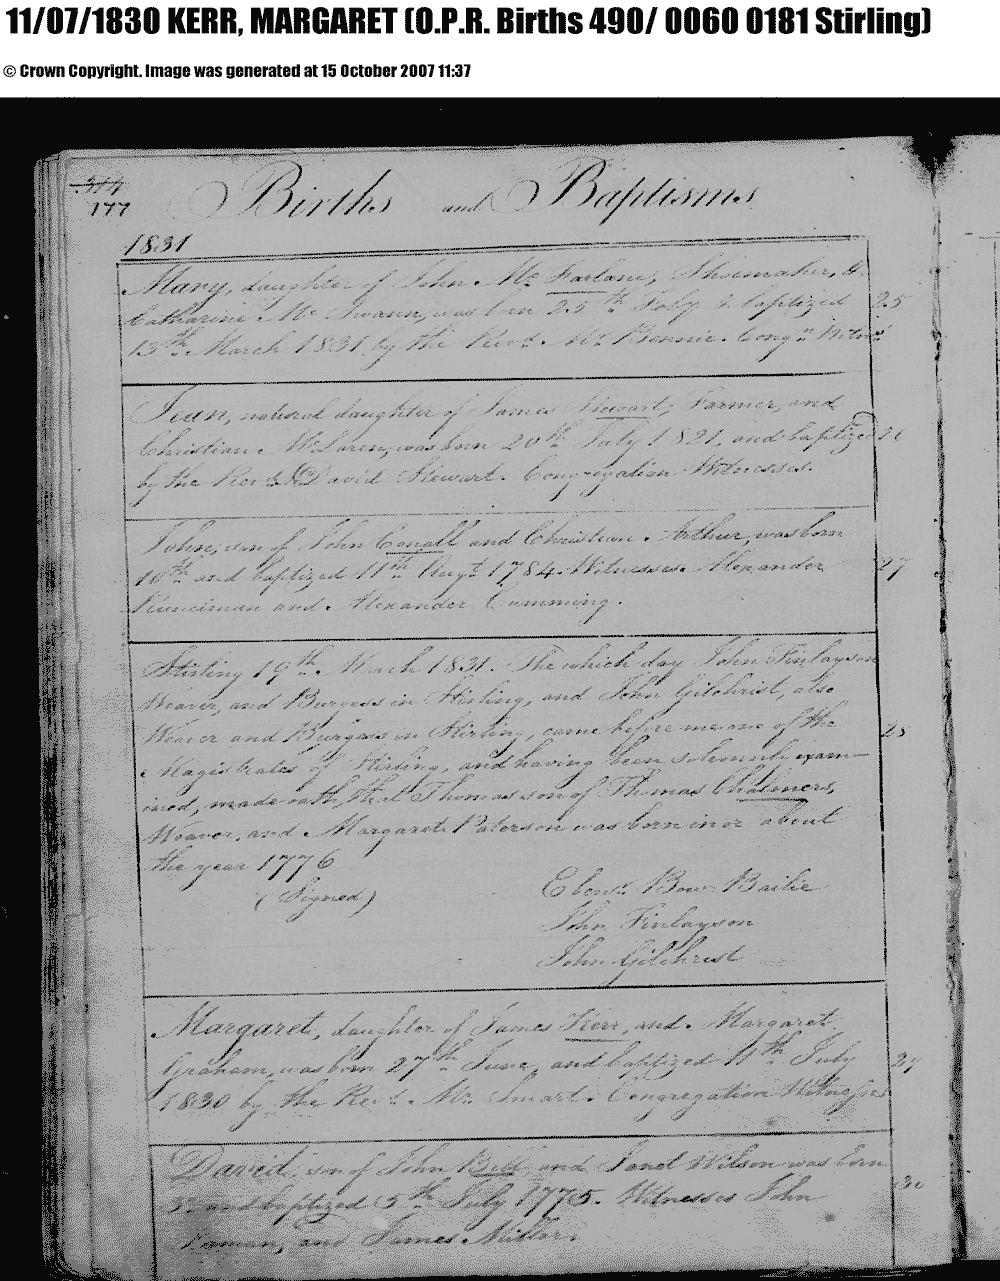 11/07/1830 KERR, MARGARET (O.P.R. Births 490/ 0060 0181 Stirling)
© Crown Copyright. Image was generated at 15 October 2007 11:37
177
Births and Baptisms
1831
Mary, daughter of John Mc Farlane, Shoemaker, &
Catharine Mc Swann, was born 25th Feby & baptized 25
13th March 1831 by the Revd. Mr Bennie. Congn Witns
Jean, natural daughter of James Stewart, Farmer, and
Christian McLaren, was born 20th July 1821, and baptized 26
by the Revd David Stewart. Congregation Witnesses.
John, son of John Conall and Christian Arthur, was born
10th and baptized 11th Augt 1784. Witnesses Alexander 27
Runciman and Alexander Cumming.
Stirling 19th March 1831. The which day John Finlayson
Weaver, and Burgess in Stirling, and John Gilchrist, also
Weaver and Burgess in Stirling, came before me one of the 28
Magistrates of Stirling, and having been solemnly exam-
ined, made oath, that Thomas son of Thomas Chalmers,
Weaver, and Margaret Paterson was born in or about
the year 1776
(Signed) Ebenr. Bow Bailie
John Finlayson
John Gilchrist
Margaret, daughter of James Kerr, and Margaret
Graham, was born 27th June, and baptized 11th July 29
1830 by the Revd. Mr. Smart. Congregation Witnesses
David, son of John Bell and Janet Wilson was born
3d and baptized 5th July 1775. Witnesses John 30
and James Miller.